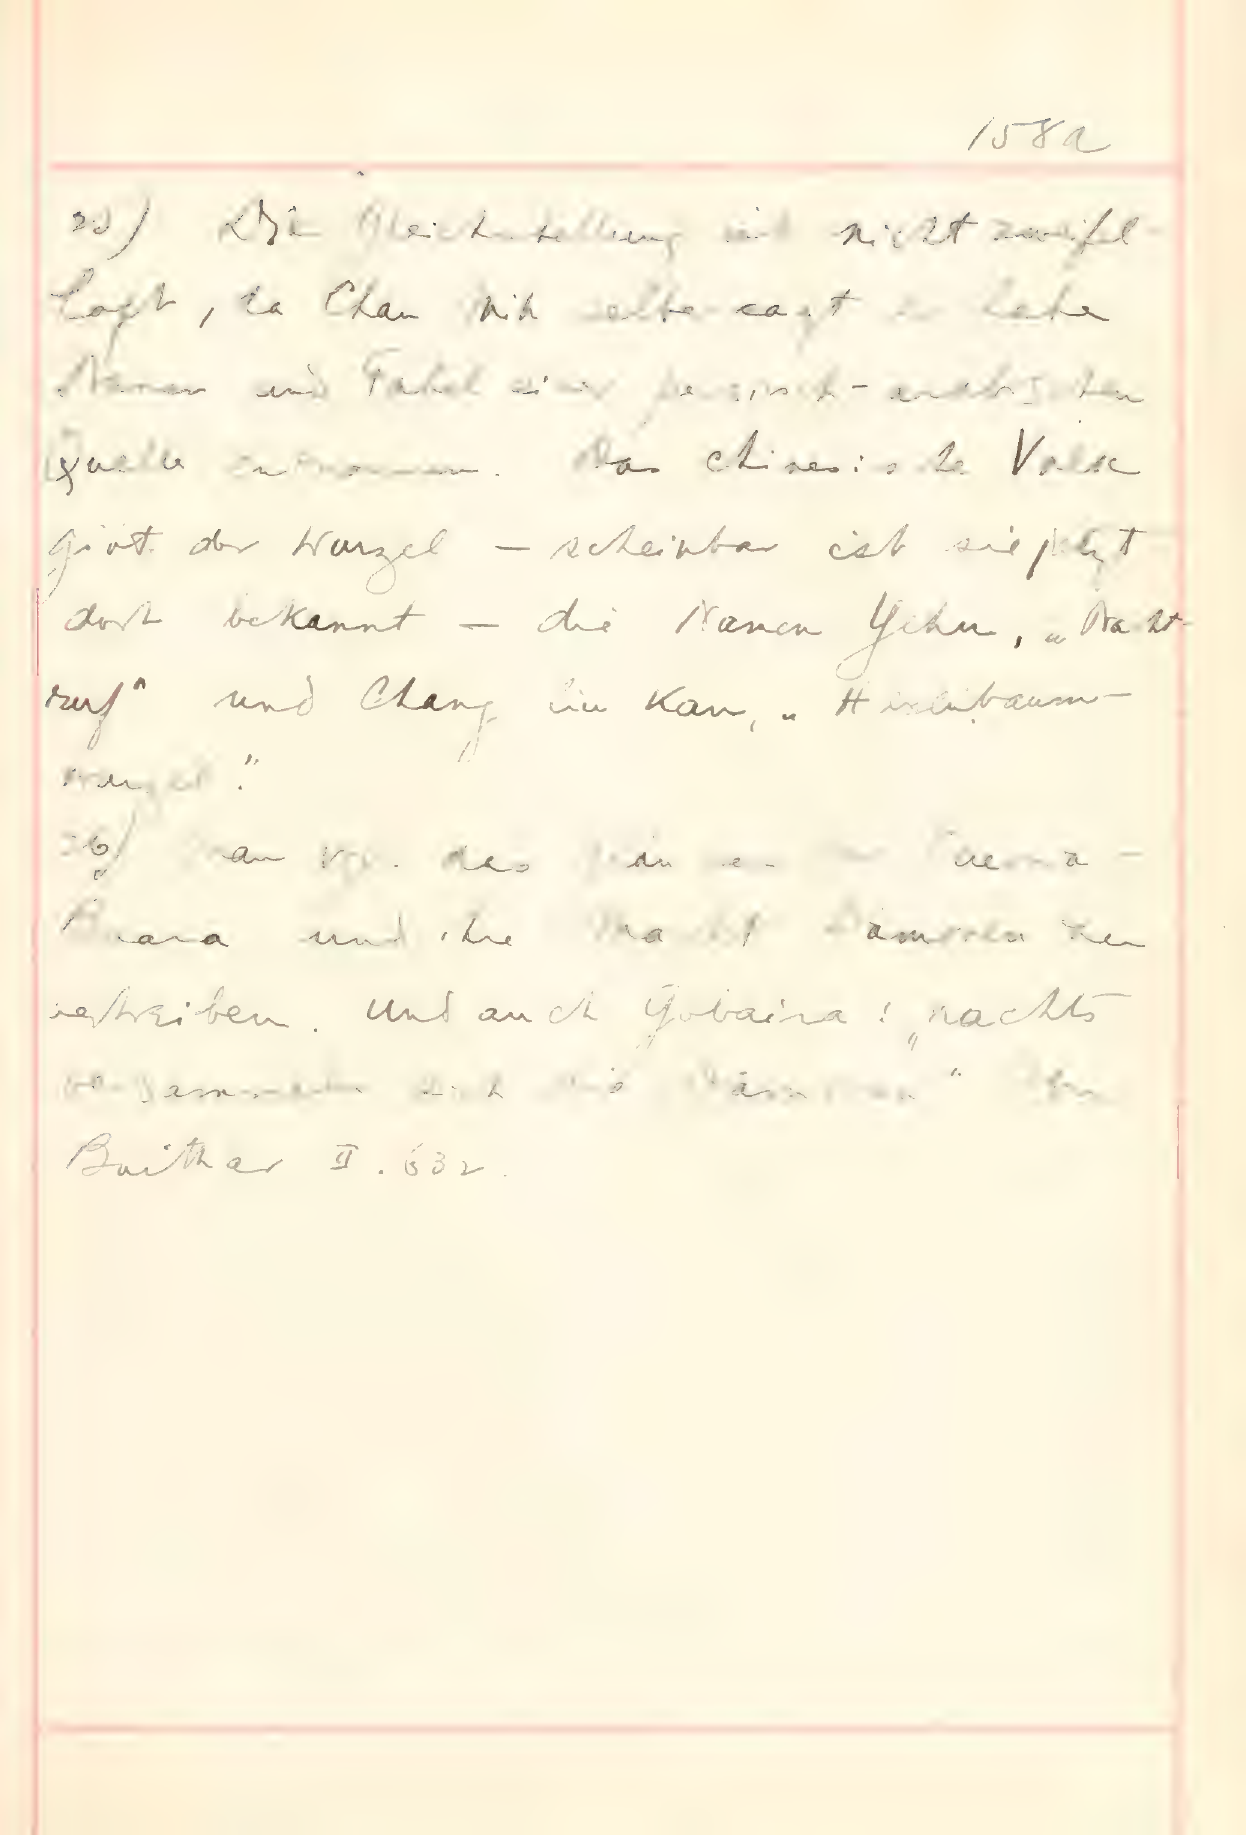 158a
25) Die Gleichstellung ist nicht zweifel-
haft, da Chau selber sagt er habe
Namen und Fabel einer persisch-arabischen
Quelle entnommen. Das chinesische Volk
gibt der Wurzel – scheinbar ist sie jetzt
dort bekannt – die Namen Yehu, „Nacht-
ruf" und Chang liu Kan, „
wurzel".
26) Man vgl. das
und ihre Macht Dämonen zu
vertreiben. Und auch Gobaira: „nachts
versammeln sich die Dämonen" Ibn
Baithar II. 632.